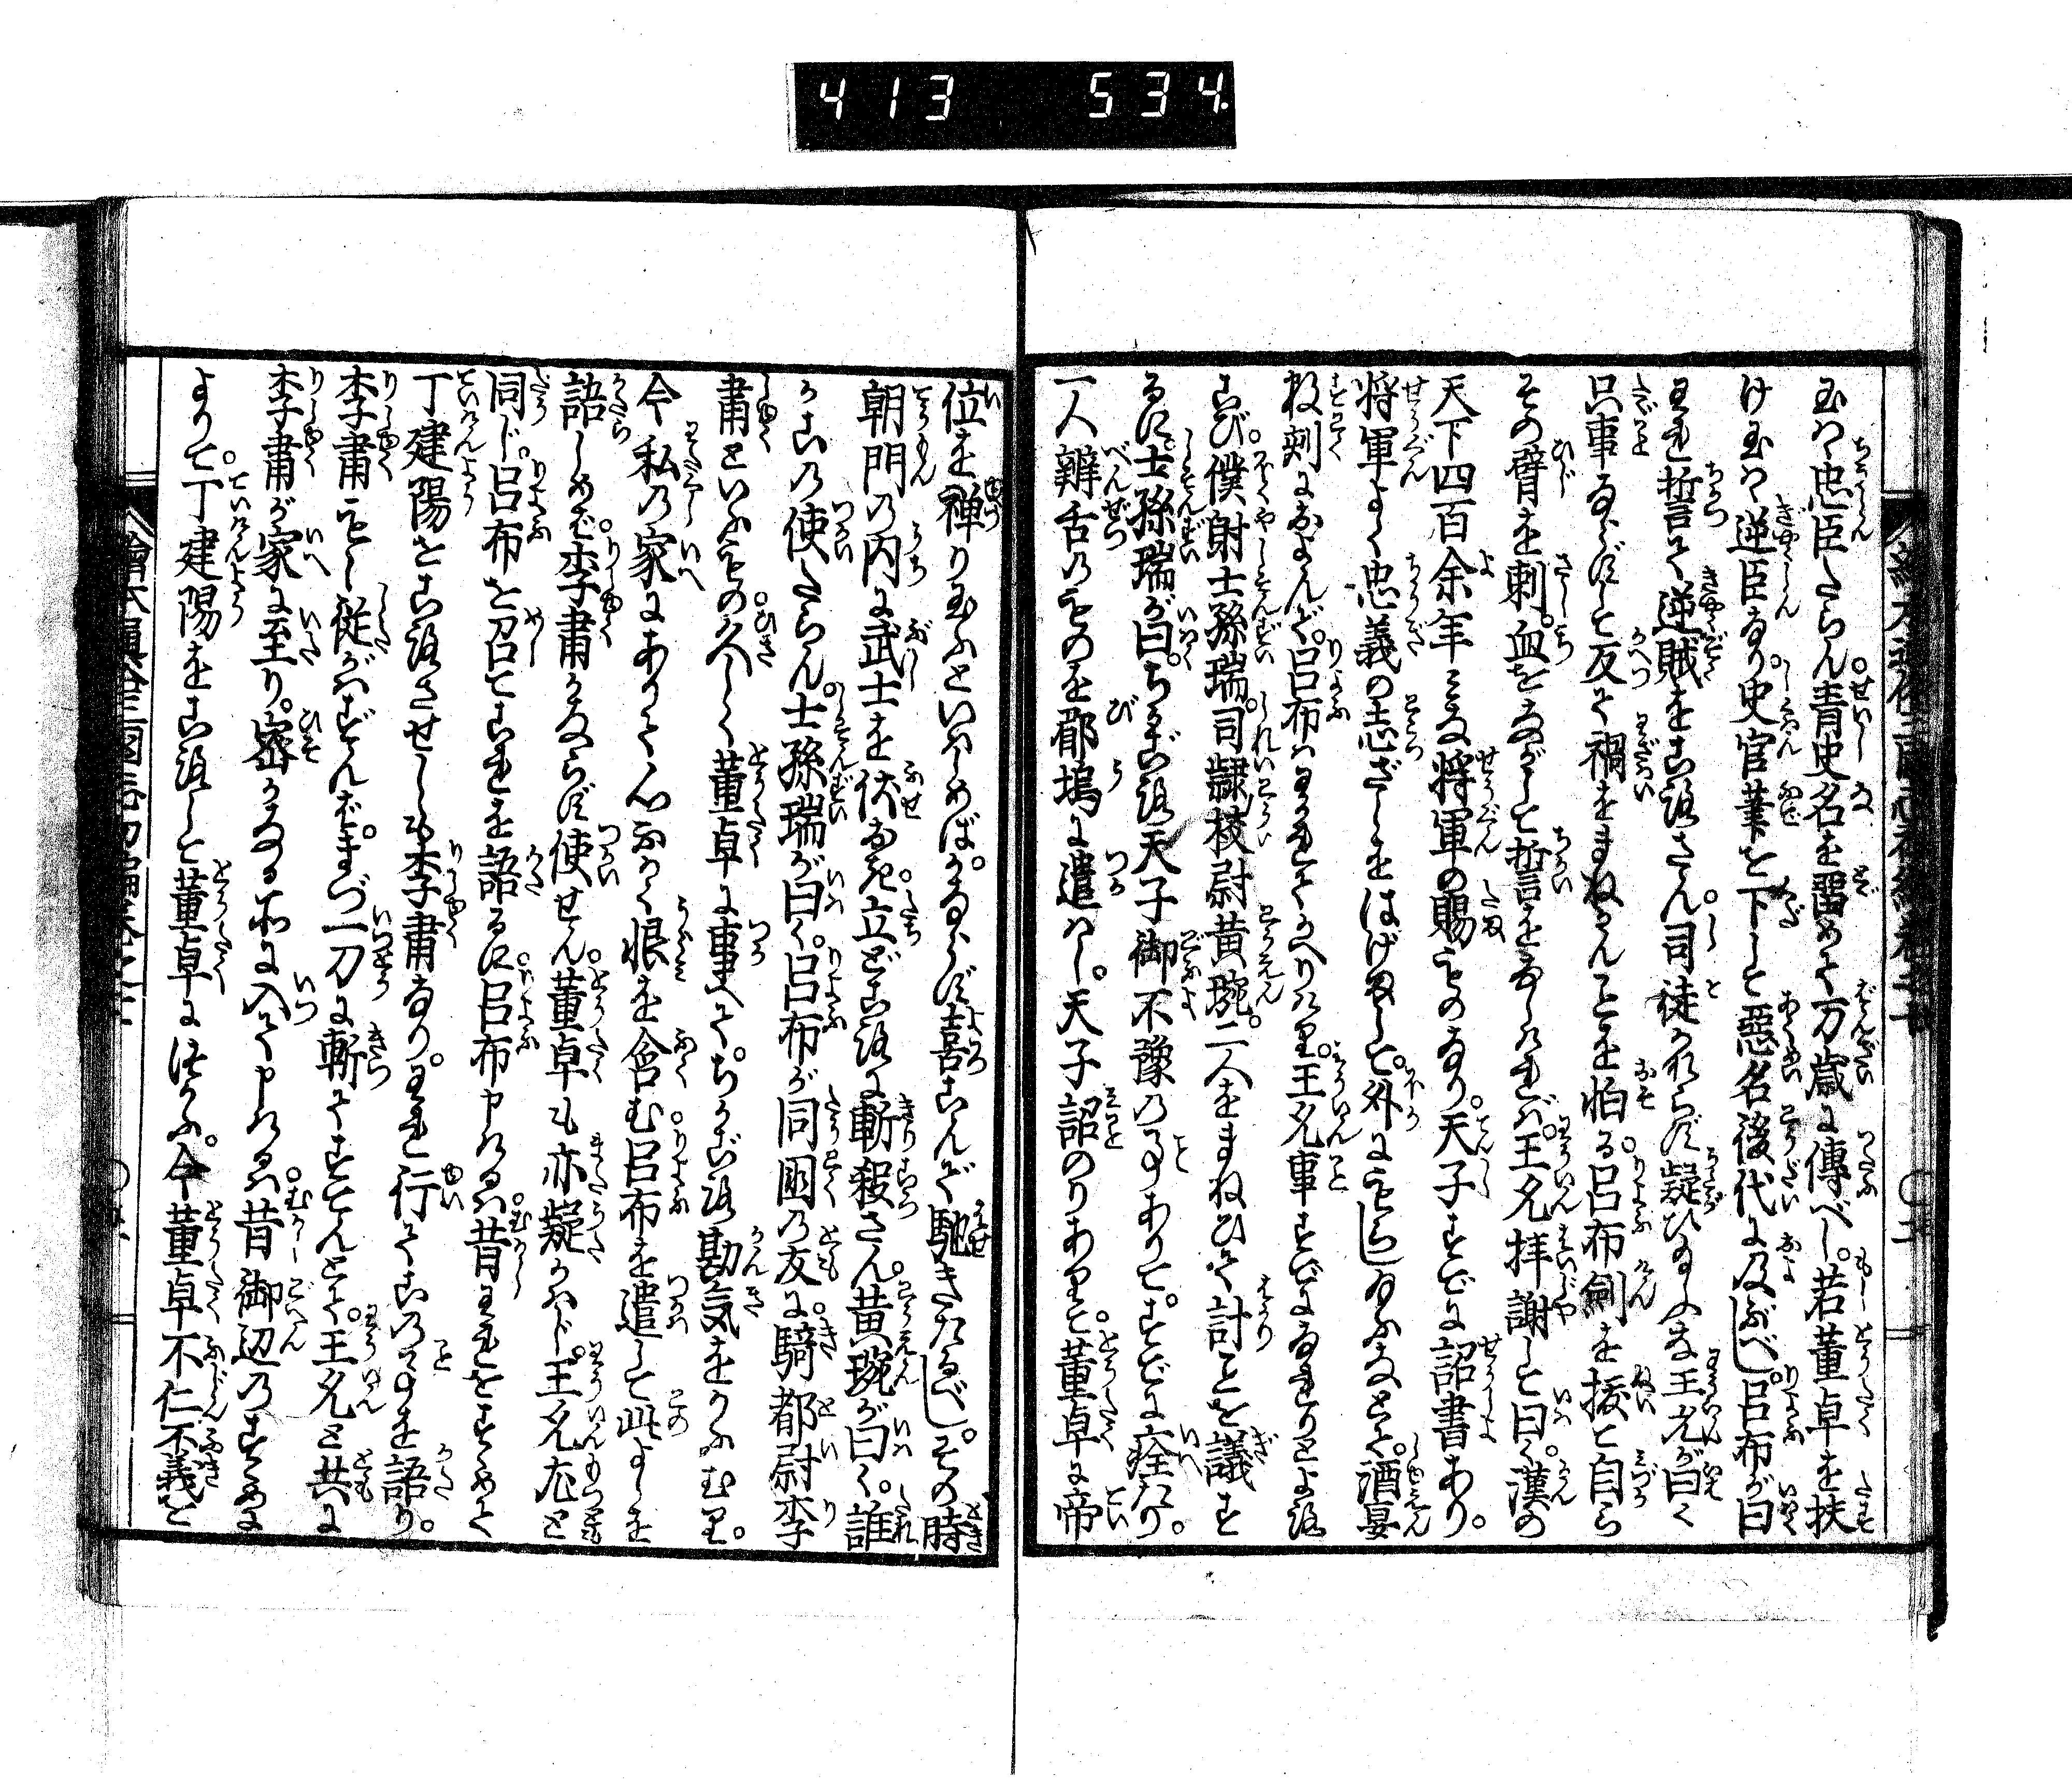 413 534
玉はゞ忠臣たらん。青史名を畱めて万歳に傳べし。若董卓を扶
け玉はゞ逆臣なり。史官筆を下して惡名後代に及ぶべし。呂布が曰
われ誓て逆賊をころさん。司徒かならず疑ひ玉ふな王允が曰く
只事ならずして反て禍をまねかんことを怕る。呂布劍を抜て自ら
その臂を刺。血をながして誓をなしければ。王允拝謝して曰く。漢の
天下四百余年みな将軍の賜ものなり。天子すでに詔書あり。
将軍よく忠義の志ざしをはげまして。外にもらし玉ふなとて。酒宴
数刻におよんで。呂布はわかれてかへりけり。王允事すでになれりとよろ
こび。僕射士孫瑞。司隷校尉黄琬。二人をまねひて計ことを議す
るに。士孫瑞が曰。ちかごろ天子御不豫の事ありて。すでに痊たり。
一人辨舌のものを郿塢に遣はし。天子詔のりありと。董卓に帝
位を禅り玉ふといはしめば。かならず喜こんで馳きたるべし。その時
朝門の内に武士を伏おき。立どころに斬殺さん。黄琬が曰く。誰
かこの使たらん。士孫瑞が曰く。呂布が同國の友に。騎都尉李
肅といふもの。久しく董卓に事へて。ちかごろ勘気をかふむり。
今私の家にありて。心ふかく恨を含む。呂布を遣して此よしを
語しめば。李肅かならず使せん。董卓も亦疑かはじ。王允尤と
同じ。呂布を召てこれを語るに。呂布申けるは。昔われをすゝめて
丁建陽をころさせしも李肅なり。われ行てこの事を語り。
李肅もし従がはずんば。まづ一刀に斬てすてんとて。王允と共に
李肅が家に至り。密かなる所に入て申けるは。昔御辺のすゝめに
よりて。丁建陽をころして董卓に仕かふ。今董卓不仁不義を